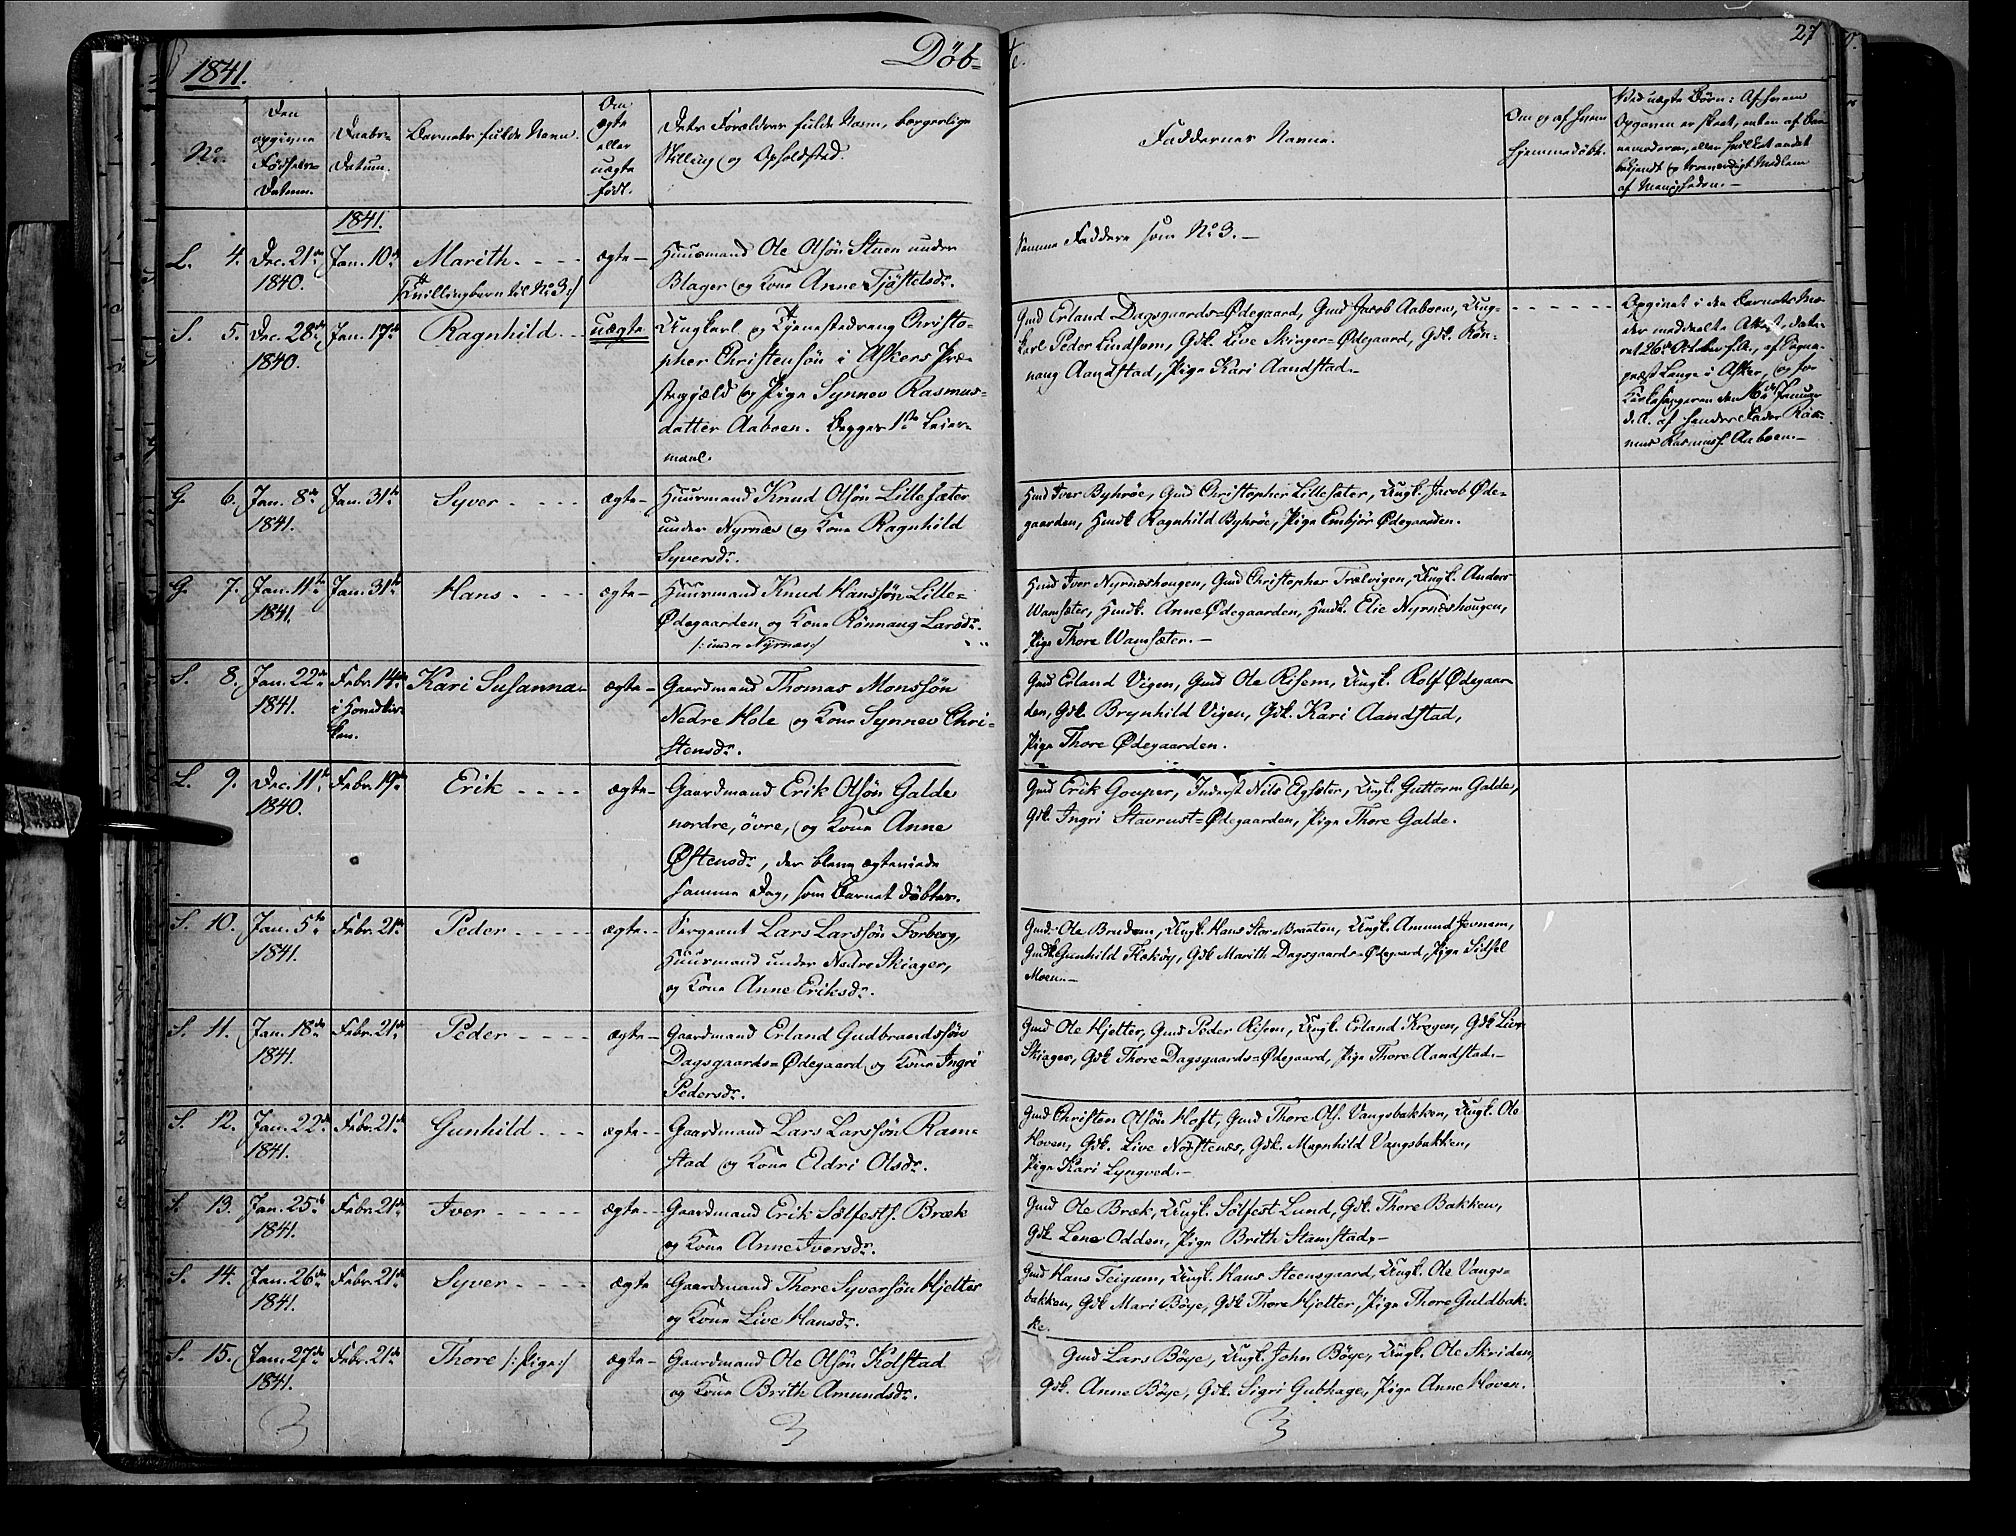 1841.
Döb-
te.
27
No.
Den
opgivne
Fødsels-
Datum.
Daabs-
Datum.
Barnets fulde Navn.
Om
ægte
eller
uægte
født.
Dets Forældres fulde Navn, borgerlige
Stilling og Opholdsted.
Faddernes Navne.
Om og af hvem
hjemmedøbt.
Ved uægte Børn: Af hvem
Opgaven er skeet, enten af Bar-
nemoderen, eller hvilket andet
bekjendt og troværdigt Medlem
af Menigheden.-
1841.
L. 4. Dec. 21de Jan. 10de Marith. ---- ægte- Huusmand Ole Olsön Stuen under
1840. /:Tvillingbarn til No 3:/ Blager og Kone Anne Tjöstelsdr.
Samme Faddere som No 3.-
S. 5. Dec. 28de Jan. 17de Ragnhild -- uægte Ungkarl og Tjenestedreng Christo-
1840. pher Christensön i Askers Præ-
stegjæld og Pige Synnev Rasmus-
datter Aaboen. Begges 1ste Leier-
maal.
Gmd Erland Dagsgaards-Ødegaard, Gmd Jacob Aaboen, Ung-
karl Peder Lindsem, Gdk. Live Skiager-Ødegaard, Gdk. Rön-
naug Aandstad, Pige Kari Aandstad.-
Opgivet i den Barnets Mo-
der meddeelte Attest, date-
ret 26de October f. A., af Sogne-
præst Lange i Asker, og for
Kirkesangeren den 16de Januar
d. A. af hendes Fader Ras-
mus Rasmuss. Aaboen.-
G. 6. Jan. 8de Jan. 31te Syver ---- ægte- Huusmand Knud Olsön Lillesæter
1841. under Nyrnæs og Kone Ragnhild
Syversdr.
Hmd Iver Byhröe, Gmd Christopher Lillesæter, Ungk. Jacob Øde-
gaarden, Hmdk Ragnhild Byhröe, Pige Embjör Ødegaarden.
G. 7. Jan. 11te Jan. 31te Hans ---- ægte- Huusmand Knud Hanssön Lille-
1841. Ødegaarden og Kone Rönnaug Larsdr.
/:under Nyrnæs:/
Hmd Iver Nyrnæshougen, Gmd Christopher Trælvigen, Ungk. Anders
Wamsæter, Hmdk. Anne Ødegaarden, Hmdk. Elie Nyrnæshougen,
Pige Thore Wamsæter.-
S. 8. Jan. 22de Febr. 14de Kari Susanna- ægte- Gaardmand Thomas Monssön
1841. i Hovedkir- Nedre Hole og Kone Synnev Chri-
ken. stensdr.
Gmd Erland Vigen, Gmd Ole Risem, Ungk. Rolf Ødegaar-
den, Gdk. Brynhild Vigen, Gdk. Kari Aandstad,
Pige Thore Ødegaarden.
L. 9. Dec. 11te Febr. 19de Erik ---- ægte- Gaardmand Erik Olsön Galde
1840. nordre, övre, og Kone Anne
Østensdr., der bleve ægteviede
samme Dag, som Barnet döbtes.
Gmd Erik Gouper, Inderst Nils Elgsæter, Ungk. Guttorm Galde,
Gdk. Ingri Stavrust-Ødegaarden, Pige Thore Galde.
S. 10. Jan. 5te Febr. 21de Peder ---- ægte- Sergeant Lars Larssön Forberg,
1841. Huusmand under Nedre Skiager,
og Kone Anne Eriksdr.
Gmd Ole Brudem, Ungk. Hans Store-Bræten, Ungk. Amund Jevnem,
Gmdk Gunhild Flækøy, Gdk Marith Dagsgaards-Ødegaard, Pige Sidsel
Moen.-
S. 11. Jan. 18de Febr. 21de Peder ---- ægte- Gaardmand Erland Gudbrandssön
1841. Dagsgaards-Ødegaard og Kone Ingri
Pedersdr.
Gmd Ole Hjelter, Gmd Peder Risem, Ungk. Erland Krogen, Gdk Live
Skiager, Gdk Thore Dagsgaards-Ødegaard, Pige Thore Aandstad.-
S. 12. Jan. 22de Febr. 21de Gunhild --- ægte- Gaardmand Lars Larssön Ram-
1841. stad og Kone Eldri Olsdr.
Gmd Christen Olsön Hoft, Gmd Thore Ols. Vangsbakken, Ungk. Ole
Hoven, Gdk. Live Nörstenæs, Gdk. Magnhild Vangsbakken,
Pige Kari Lyngved.-
S. 13. Jan. 25de Febr. 21de Iver ---- ægte- Gaardmand Erik Sölfests. Bræk
1841. og Kone Anne Iversdr.
Gmd Ole Bræk, Ungk. Sölfest Lund, Gdk. Thore Bakken,
Gdk Lene Odden, Pige Brith Stamstad.-
S. 14. Jan. 26de Febr. 21de Syver ---- ægte Gaardmand Thore Syversön Hjelter
1841. og Kone Live Hansdr.
Gmd Hans Teigum, Ungk. Hans Steensgaard, Ungk. Ole Vangs-
bakken, Gdk Mari Böye, Gdk Thore Hjelter, Pige Thore Guldbak-
ke.
S. 15. Jan. 27de Febr. 21de Thore /:Pige:/ ægte- Gaardmand Ole Olsön Kolstad
1841. og Kone Brith Amundsdr.
Gmd Lars Böye, Ungk. John Böye, Ungk. Ole Skriden,
Gdk. Anne Böye, Gdk. Sigri Gubhage, Pige Anne Hoven.
3 3 3